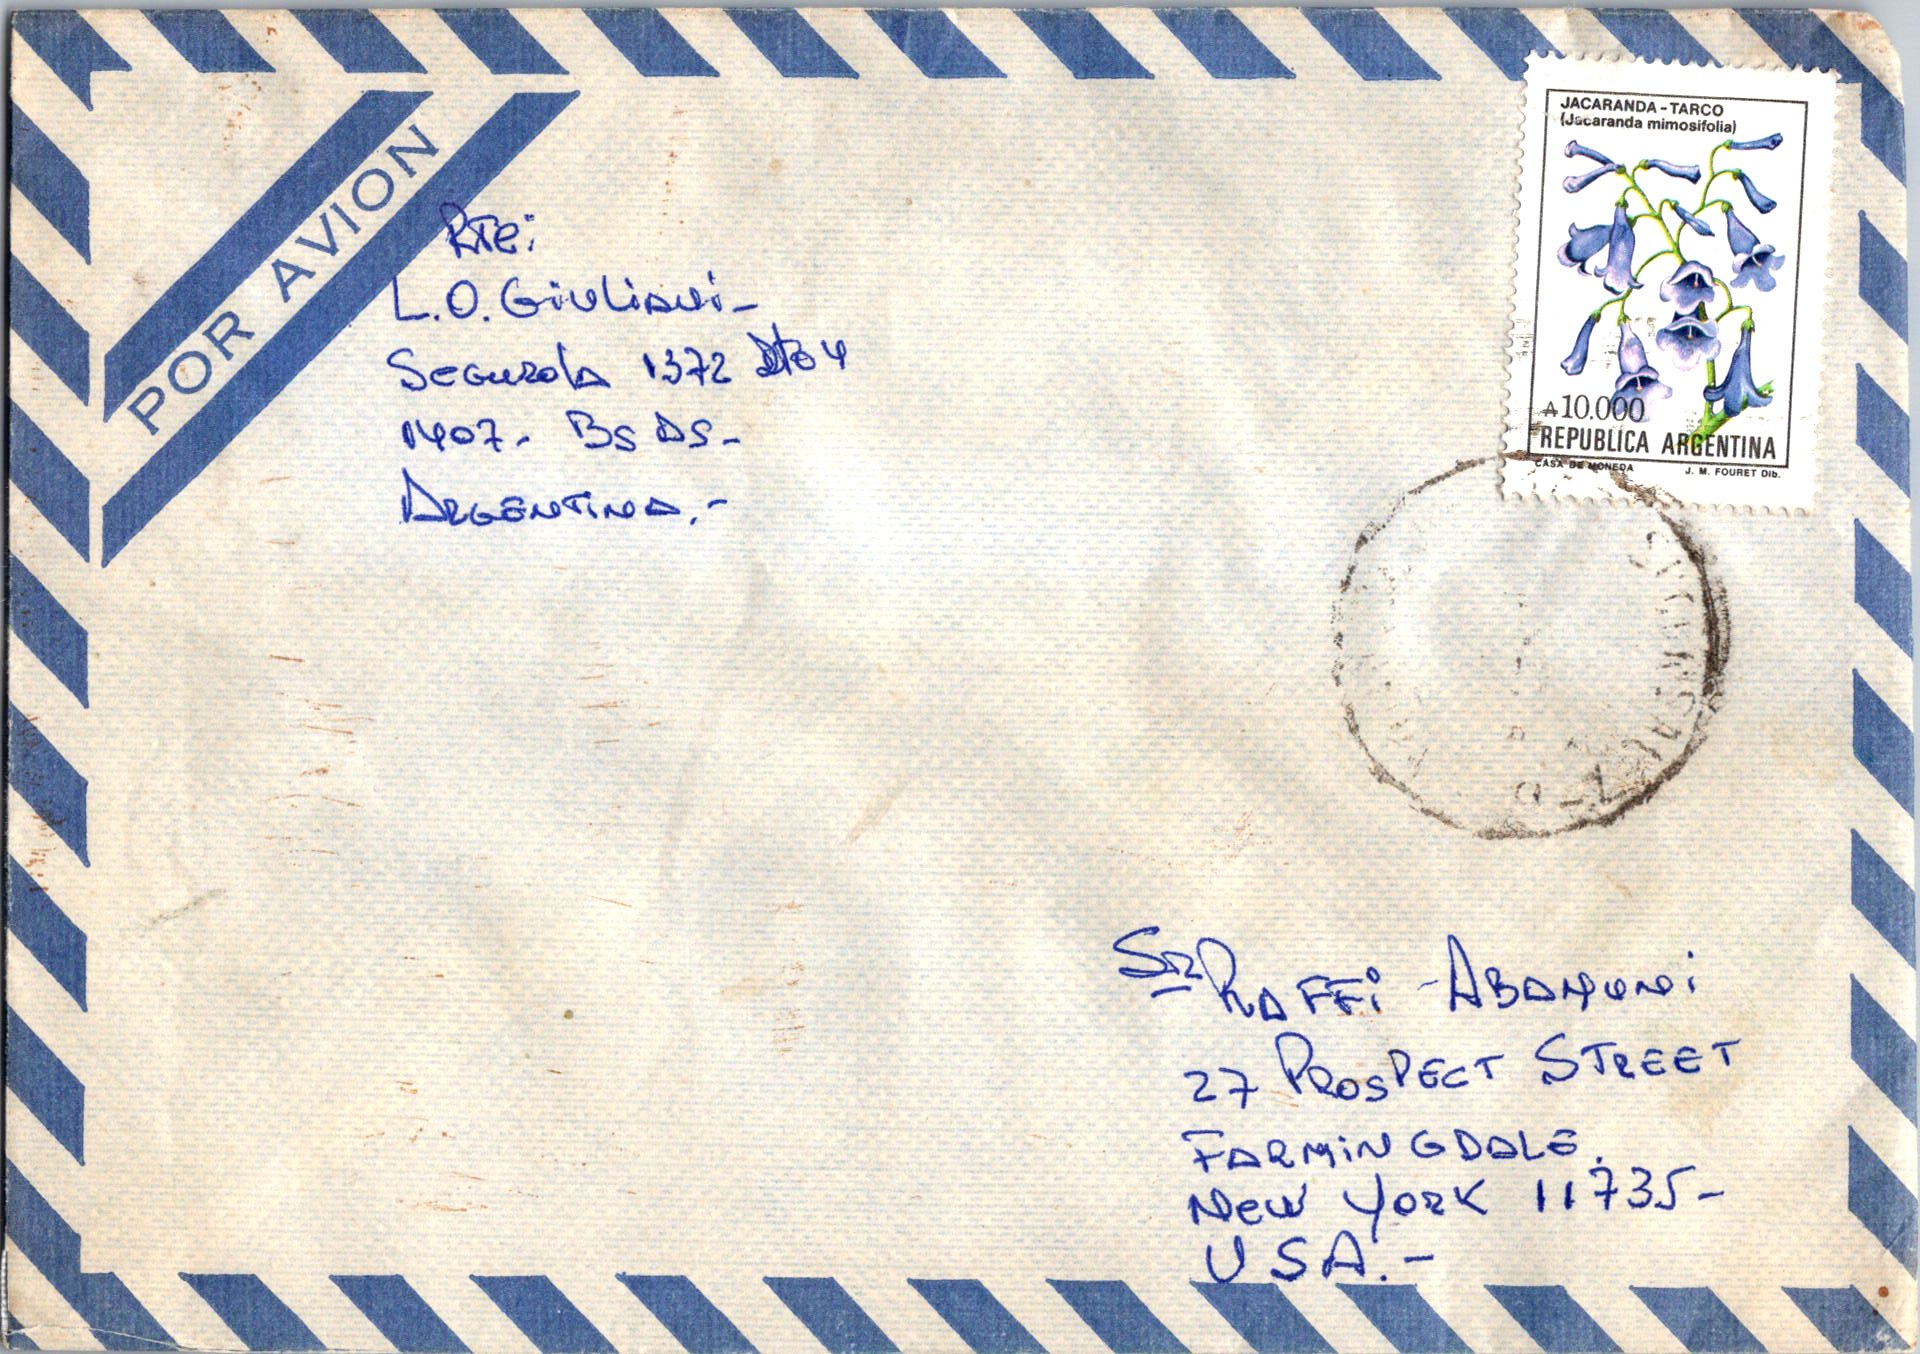 POR AVION
Rte:
L.O. Giuliani-
Segurola 1372 Dto 4
1407- Bs As-
ARGENTINA.-
JACARANDA - TARCO
(Jacaranda mimosifolia)
₳10.000
REPUBLICA ARGENTINA
CASA DE MONEDA J. M. FOURET Dib.
SR RAFFi
27 PROSPECT STREET
FARMiNGDALE.
New York 11735-
USA.-